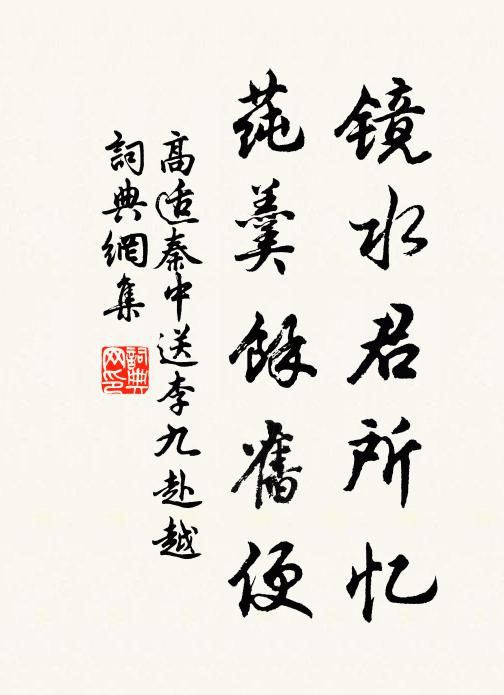 镜水君所忆
莼羹餘舊便
高适秦中送李九赴越
詞典網集
詞典
网印